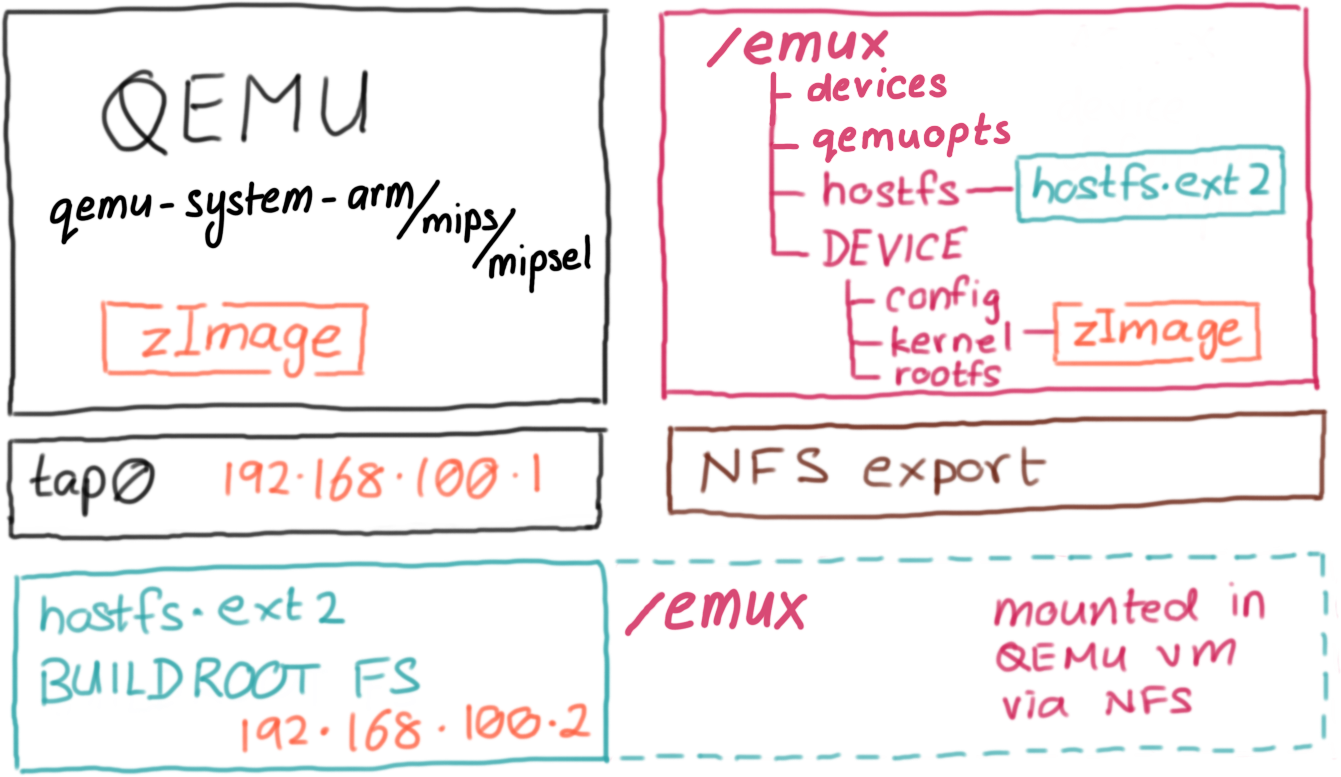 QEMU
qemu-system-arm/mips/mipsel
zImage
/emux
devices
qemuopts
hostfs hostfs.ext2
DEVICE
config
kernel zImage
rootfs
tap0 192.168.100.1
NFS export
hostfs.ext2
BUILDROOT FS
192.168.100.2
/emux
mounted in
QEMU VM
via NFS